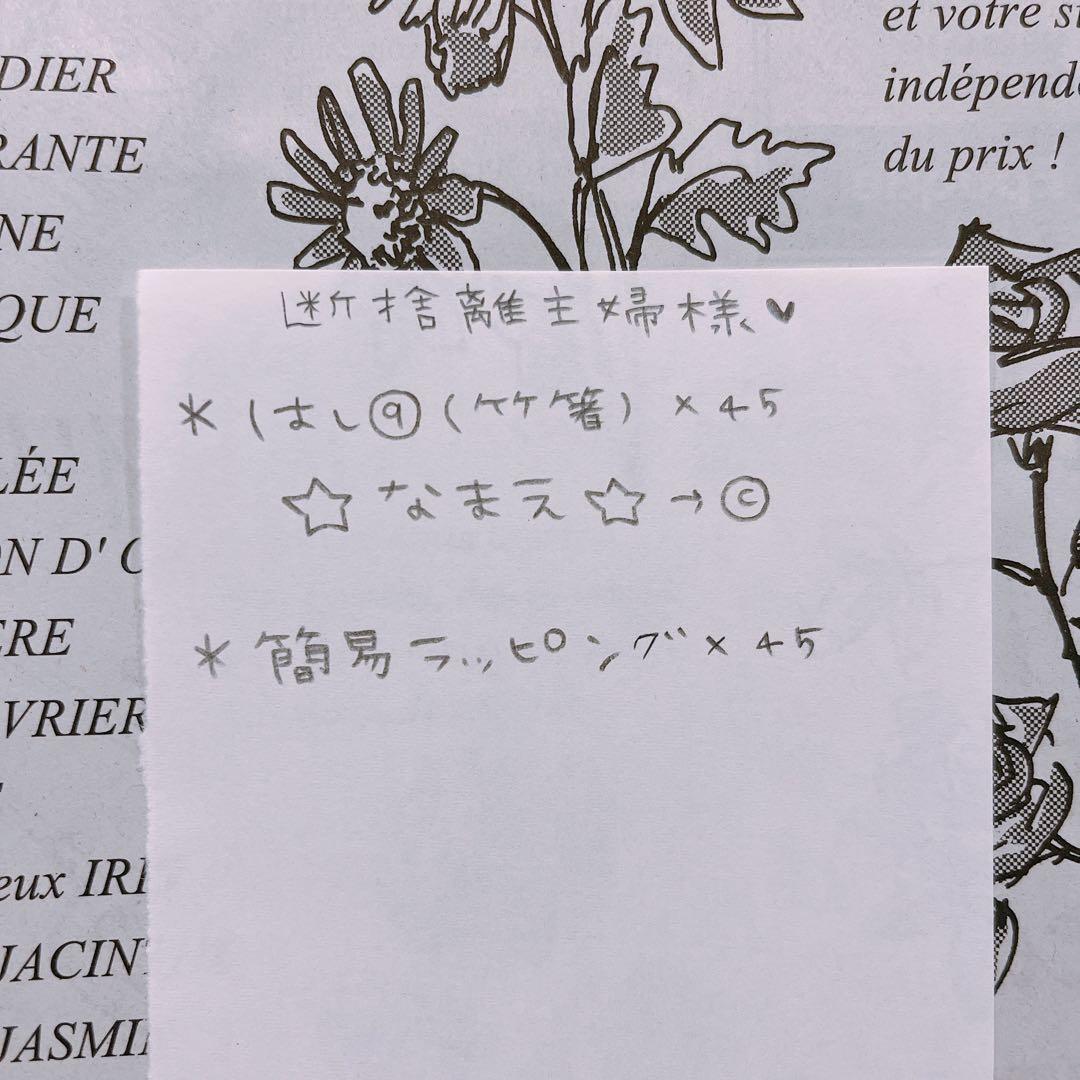 DIER
RANTE
NE
QUE
LÉE
ON D'
ÈRE
VRIER
eux IRI
JACINT
JASMI
et votre s
indépend
du prix !
断捨離主婦様♥
* はし⑨(竹箸) × 45
☆ なまえ ☆ → ©
* 簡易ラッピング × 45